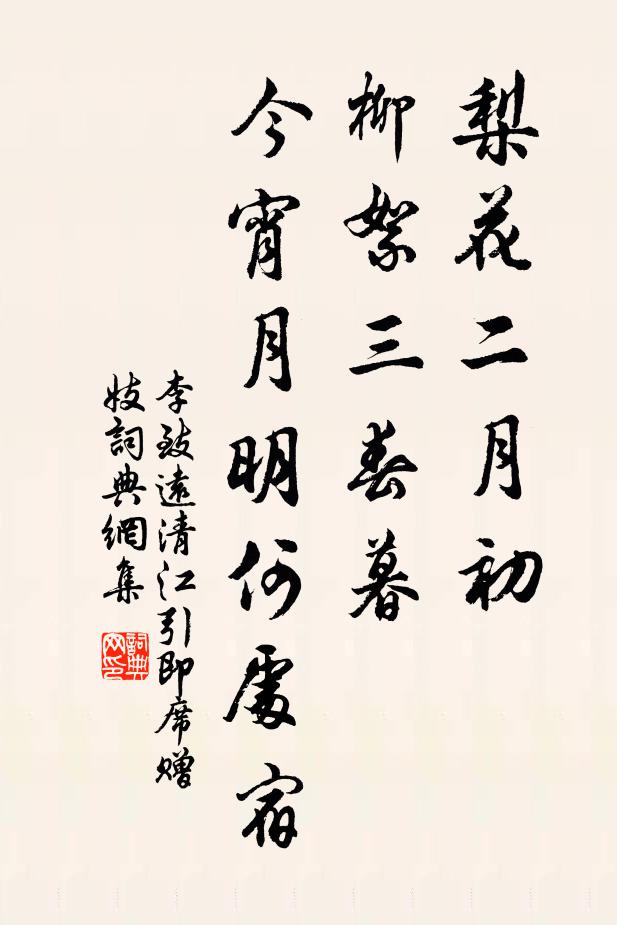 梨花二月初
柳絮三春暮
今宵月明何處宿
李致遠清江引即席贈
妓詞典網集
詞典
网印